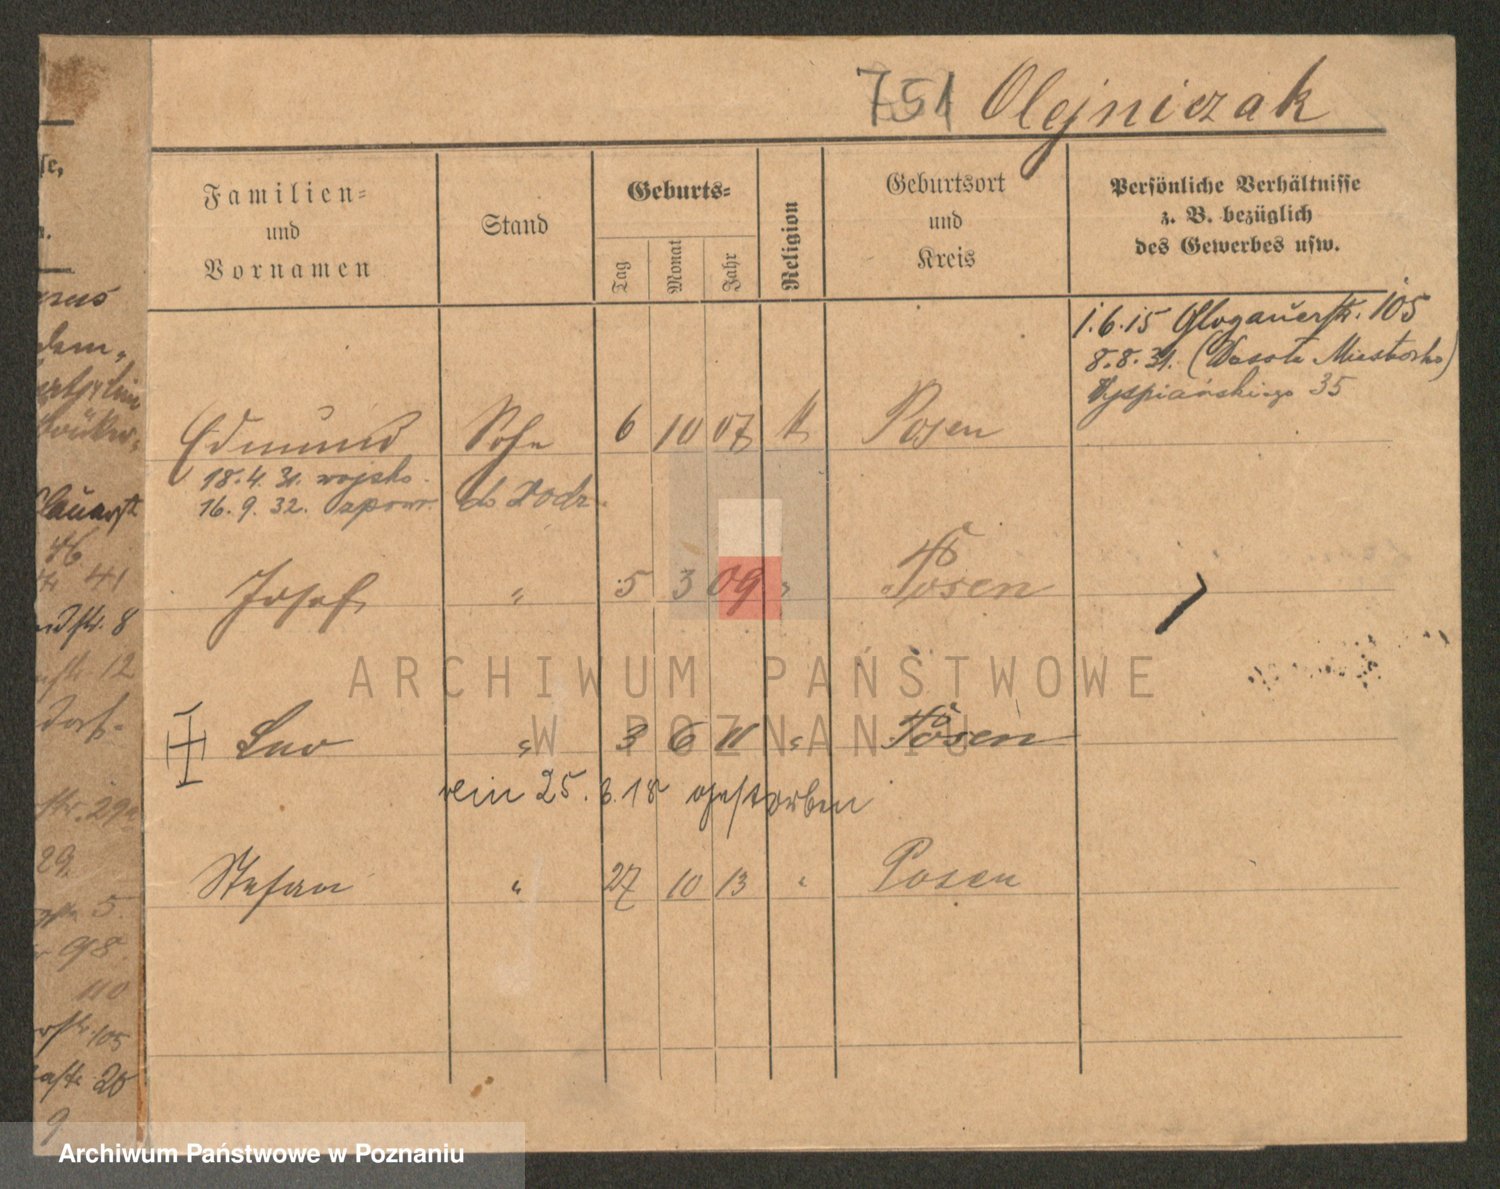 751 Olejniczak
Familien-
und
Vornamen
Stand
Geburts-
Tag
Monat
Jahr
Religion
Geburtsort
und
Kreis
Persönliche Verhältnisse
z. B. bezüglich
des Gewerbes usw.
1.6.15 Glogauerstr. 105
8.8.31.
Wyspiańskiego 35
Edmund Sohn 6 10 07 k Posen
18.4.31. wojsko.
16.9.32. do rodz.
Josef " 5 3 09 " Posen
Leo " 3 6 11 " Posen
25.8.18 gestorben
Stefan " 27 10 13 " Posen
se,
n.
46
41
str. 8
12
dorf.
str. 29a
29.
5.
98.
110
str. 105
20
9
ARCHIWUM PAŃSTWOWE
W POZNANIU
Archiwum Państwowe w Poznaniu